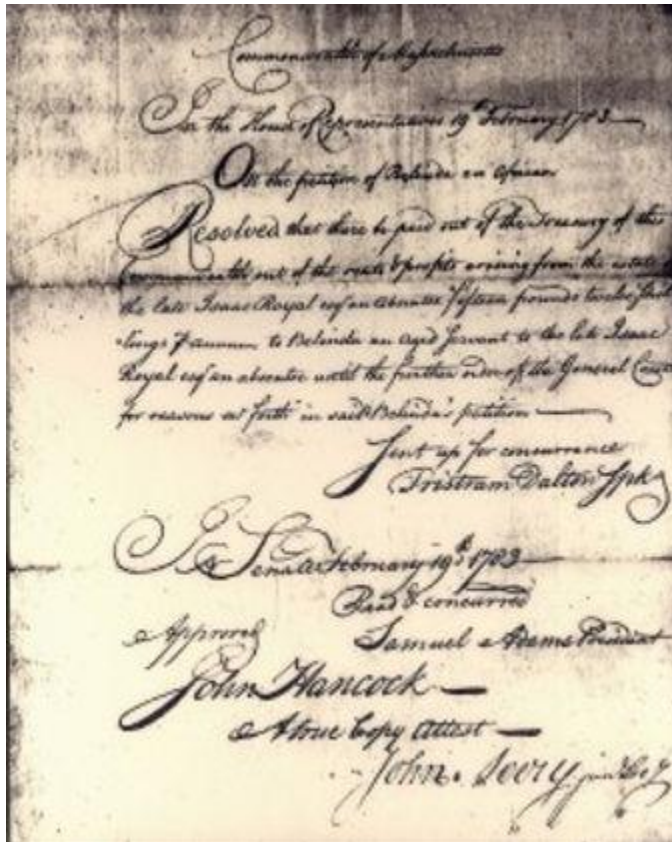 Commonwealth of Massachusetts
In the House of Representatives 19th February 1783
On the petition of Belinda an African
Resolved that there be paid out of the Treasury of this
Commonwealth out of the rents & profits arising from the estate of
the late Isaac Royal esqr an absentee fifteen pounds twelve shil
lings P annum to Belinda an aged servant to the late Isaac
Royal esqr an absentee until the further order of the General Court
for reasons set forth in said Belinda's petition
Sent up for concurrence
Tristram Dalton Spkr
In Senate February 19th 1783
Read & concurred
Approved Samuel Adams President
John Hancock
A true Copy Attest
John Avery junr Secy